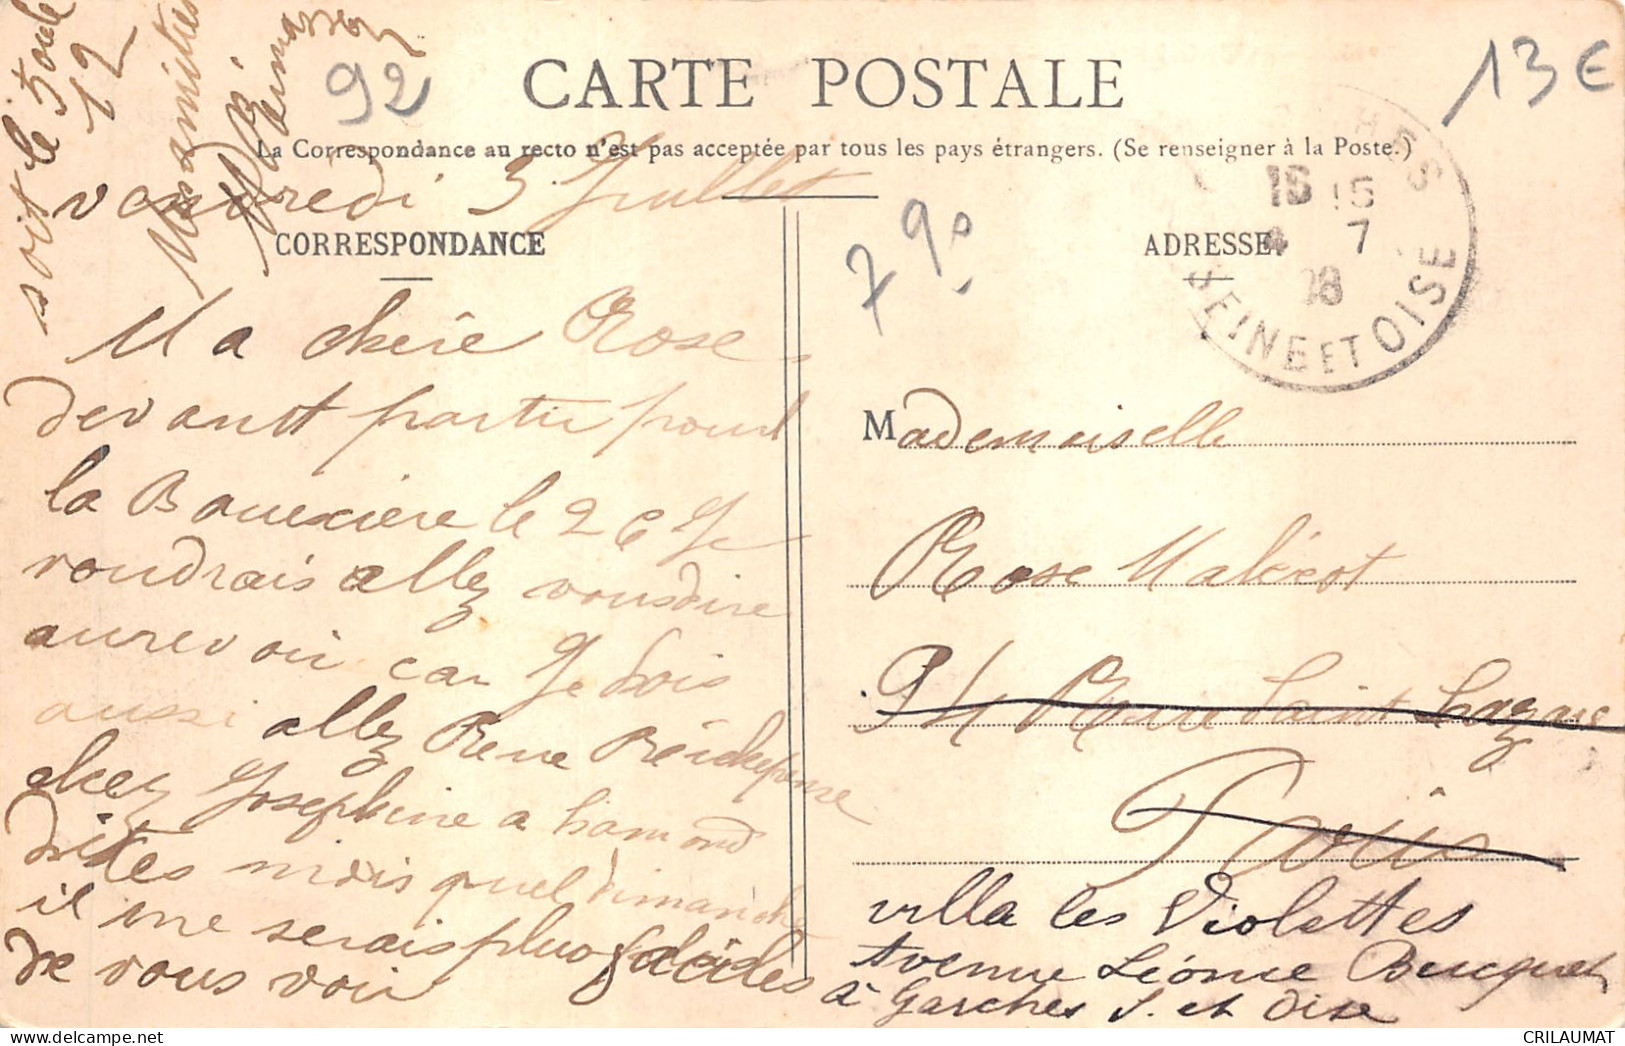 CARTE POSTALE
La Correspondance au recto n'est pas acceptée par tous les pays étrangers. (Se renseigner à la Poste.)
92
13 €
soit le 5 ou le
12
Mes amitiés
vendredi 3 Juillet
CORRESPONDANCE
Ma chère Rose
devant partir pour
la Bauexière le 26 Je
voudrais allez vous dire
aurevoir car Je dois
aussi allez Rene
chez Josephine a
dites mois quel dimanche
il me serais plus faciles
de vous voir
79
ADRESSE
16 15
4 7
08
SEINE ET OISE
Mademoiselle
Rose
94 Rue Saint Lazare
Paris
villa les Violettes
Avenue Léonie Bucquet
à Garches S. et Oise
CRILAUMAT